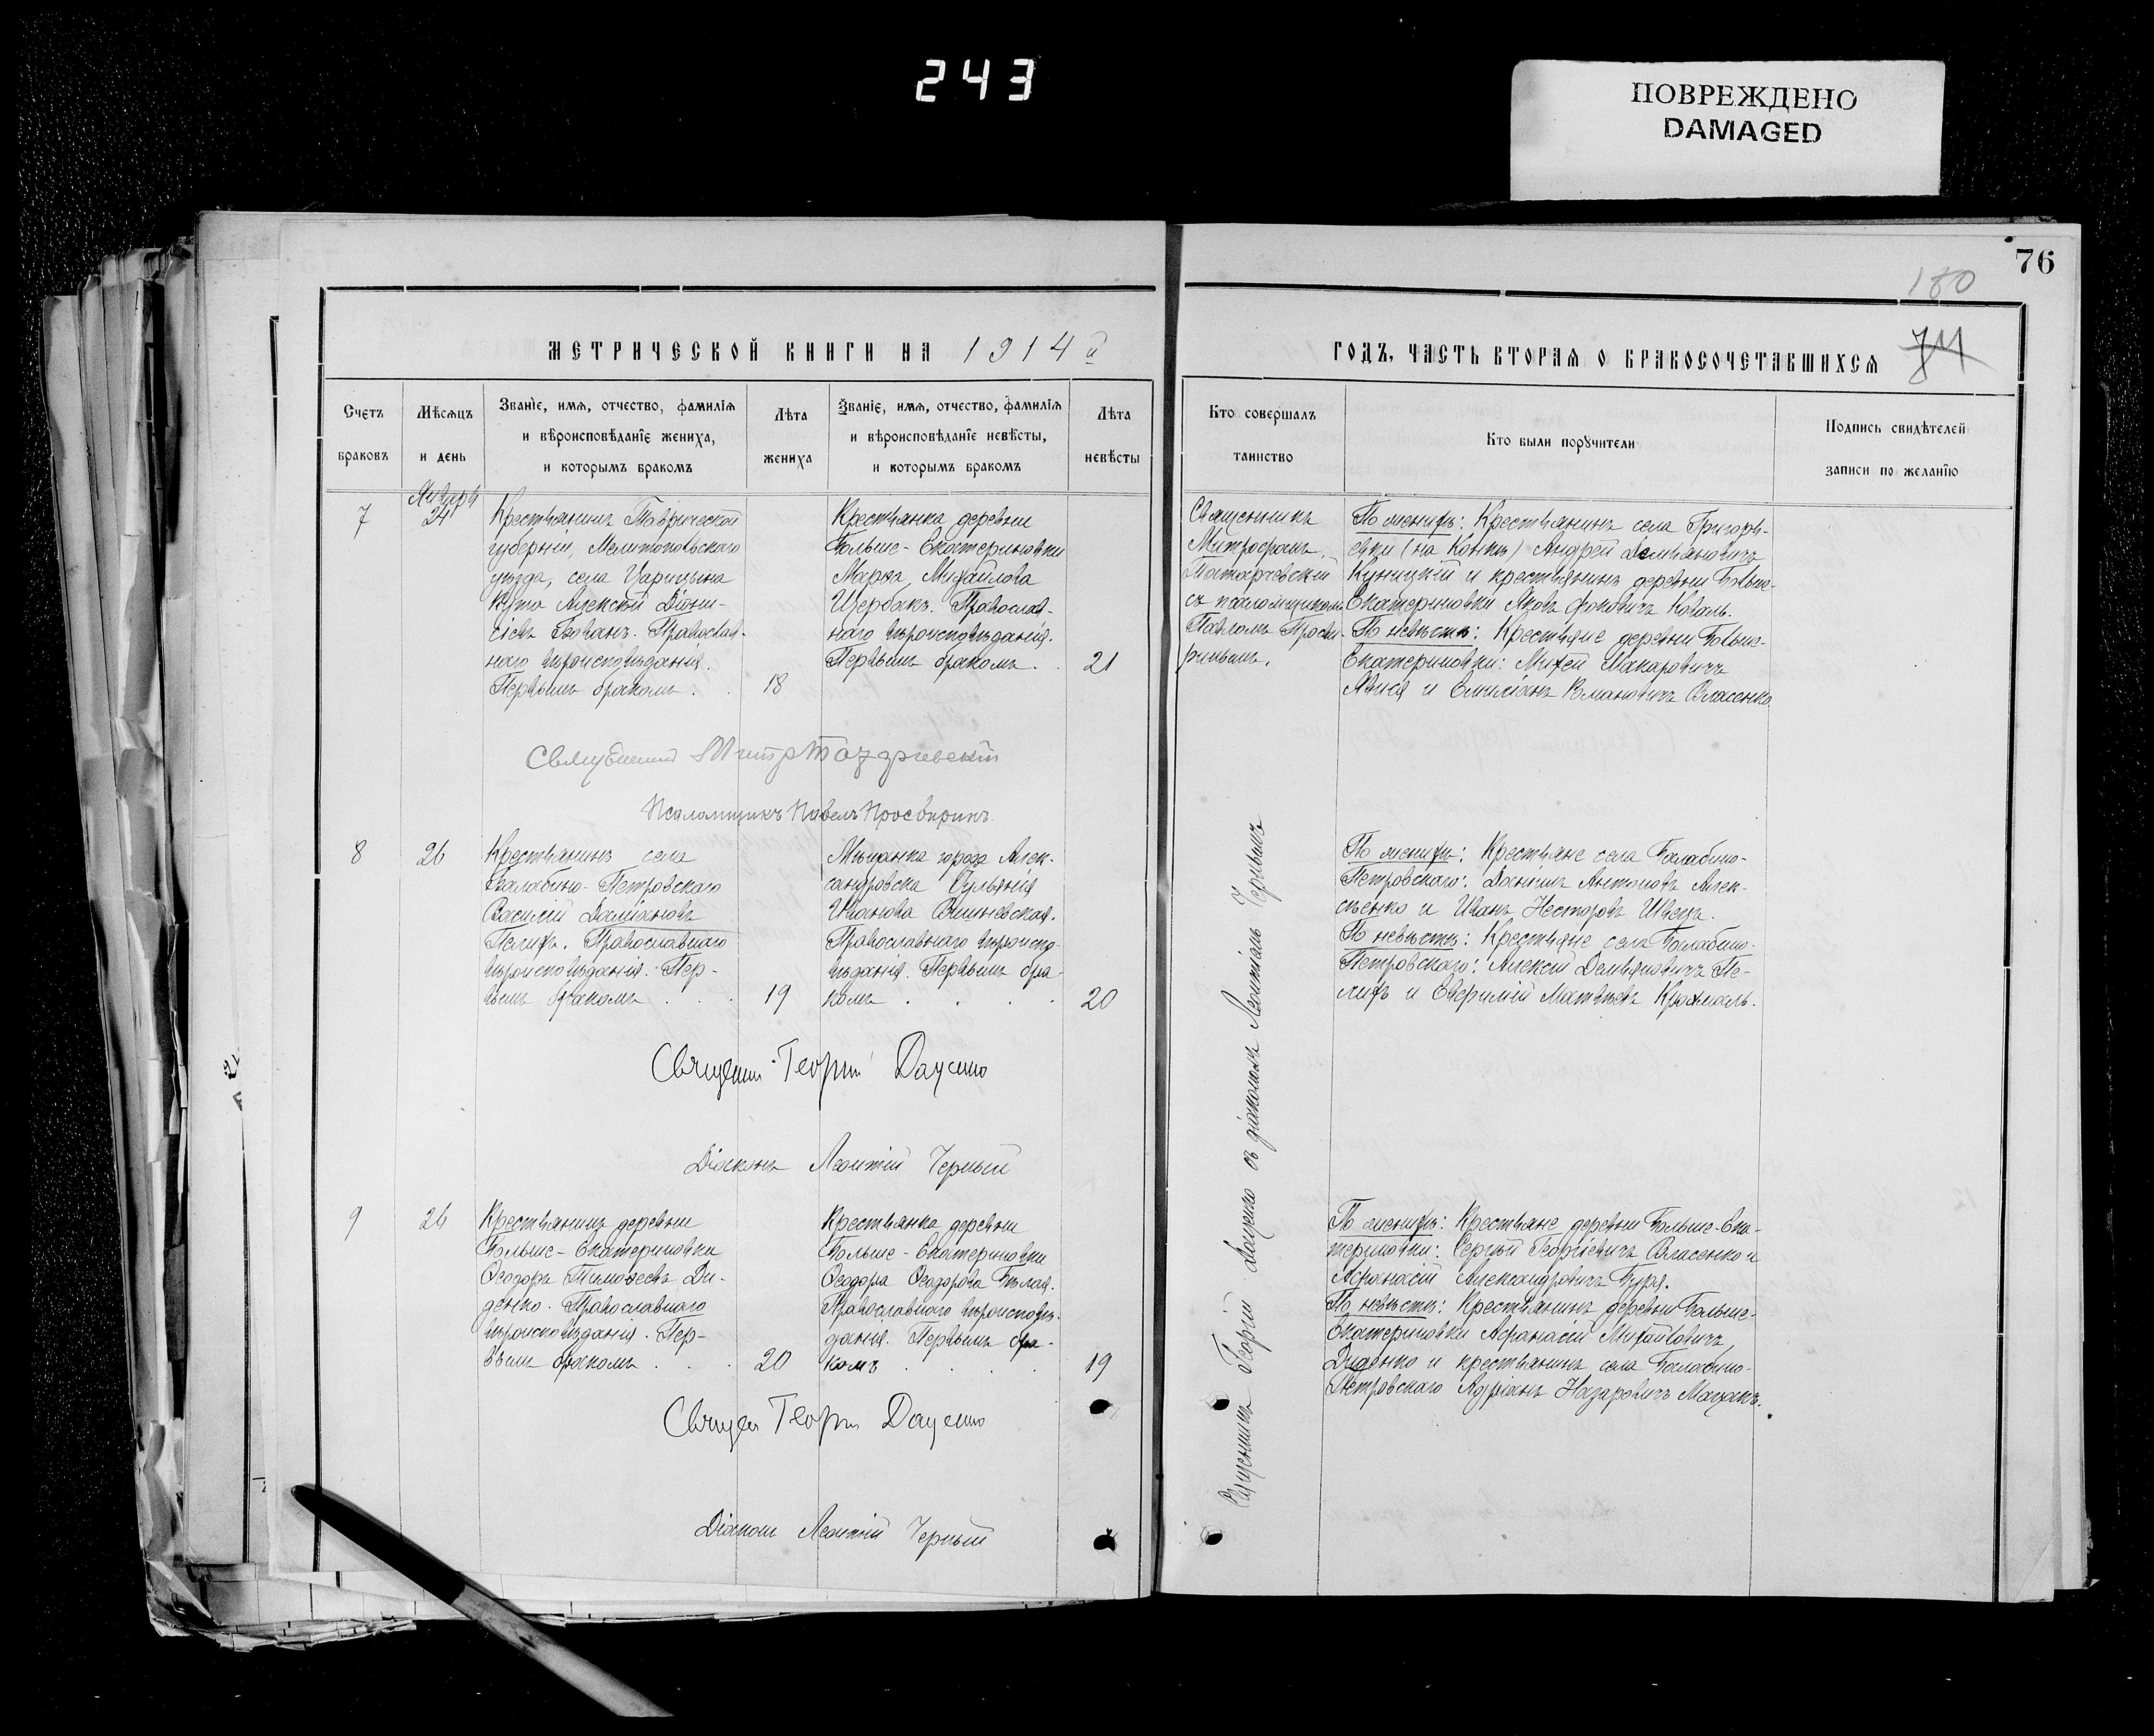 243
ПОВРЕЖДЕНО
DAMAGED
76
180
74
МЕТРИЧЕСКОЙ КНИГИ НА 1914й
ГОДЪ, ЧАСТЬ ВТОРАЯ О БРАКОСОЧЕТАВШИХСЯ
Счетъ браковъ
Мѣсяцъ и день
Званїе, имя, отчество, фамилїя
и вѣроисповѣданїе жениха,
и которымъ бракомъ
Лѣта жениха
Званїе, имя, отчество, фамилїя
и вѣроисповѣданїе невѣсты,
и которымъ бракомъ
Лѣта невѣсты
Кто совершалъ
таинство
Кто были поручители
Подпись свидѣтелей
записи по желанїю
7
Январь
24
Крестьянинъ Таврической
губерніи, Мелитопольскаго
уѣзда, села Царицына
Кута Алексѣй Діони-
сіевъ Православ-
наго вѣроисповѣданія.
Первымъ бракомъ.
18
Крестьянка деревни
Больше-Екатериновки
Марѳа Михайлова
Щербакъ. Православ-
наго вѣроисповѣданія.
Первымъ бракомъ.
21
Священникъ
Митрофанъ
съ псаломщикомъ
Павломъ Просви-
ринымъ.
По женихѣ: Крестьянинъ села Григорь-
евки (на Конкѣ) Андрей Демьяновичъ
Куницкій и крестьянинъ деревни Больше-
Екатериновки Яковъ Фоковичъ Коваль.
По невѣстѣ: Крестьяне деревни Больше-
Екатериновки: Михей Макаровичъ
и Емиліанъ Власенко
Псаломщикъ Павелъ Просвиринъ
8
26
Крестьянинъ села
Балабино-Петровскаго
Василій Даміановъ
Пелихъ. Православнаго
вѣроисповѣданія. Пер-
вымъ бракомъ . . .
19
Мѣщанка города Алек-
сандровска Іульянія
Иванова Вишневская.
Православнаго вѣроиспо-
вѣданія. Первымъ бра-
комъ . . . .
20
По женихѣ: Крестьяне села Балабино-
Петровскаго: Даніилъ Антоновъ Алек-
сѣенко и Иванъ Несторовъ Швецъ.
По невѣстѣ: Крестьяне села Балабино-
Петровскаго: Алексій Демьяновичъ Пе-
лихъ и Евфимій Матвѣевъ Крохмаль.
Священникъ Георгій Даценко
Діаконъ Леонтій Черный
Священникъ Георгій Даценко съ діакономъ Леонтіемъ Чернымъ
9
26
Крестьянинъ деревни
Больше-Екатериновки
Ѳеодоръ Тимоѳеевъ Ди-
денко. Православнаго
вѣроисповѣданія. Пер-
вымъ бракомъ . . .
20
Крестьянка деревни
Больше-Екатериновки
Ѳеодора Ѳеодорова Бѣлая.
Православнаго вѣроисповѣ-
данія. Первымъ бра-
комъ . . .
19
По женихѣ: Крестьяне деревни Больше-Ека-
териновки: Сергѣй Георгіевичъ Власенко и
Афанасій Александровичъ Буря.
По невѣстѣ: Крестьянинъ деревни Больше-
Екатериновки Афанасій Михайловичъ
Диденко и крестьянинъ села Балабино-
Петровскаго Адріанъ Назаровичъ Мацакъ.
Священ Георгій Даценко
Діаконъ Леонтій Черный